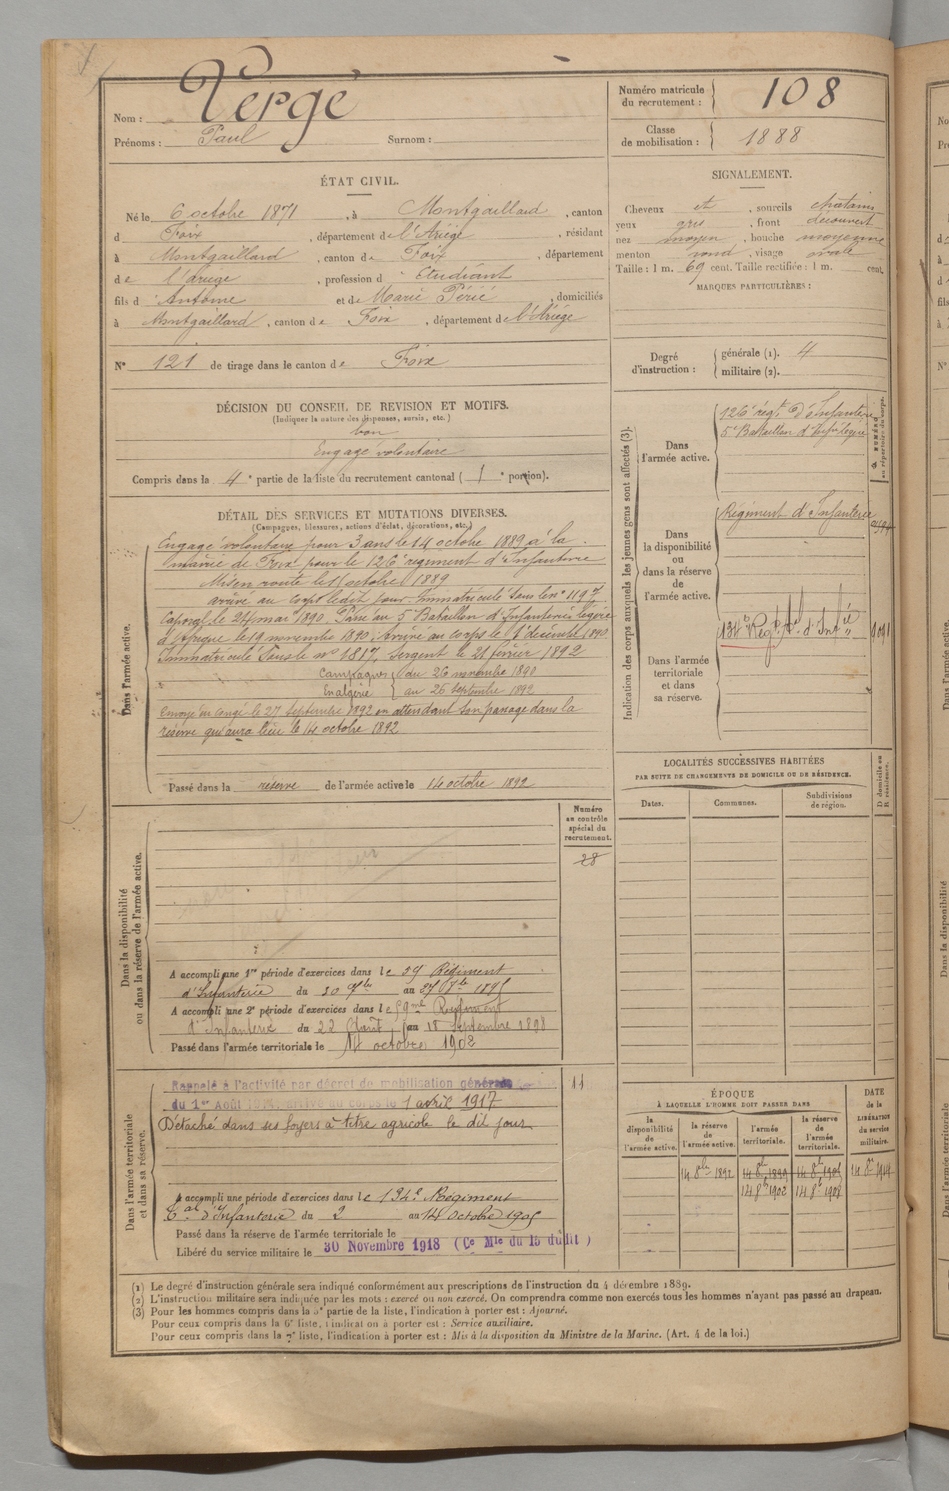 Nom : Vergé
Prénoms : Paul Surnom :
Numéro matricule du recrutement : 108
Classe de mobilisation : 1888
ÉTAT CIVIL.
Né le 6 octobre 1871, à Montgaillard, canton
d Foix, département de l'Ariège, résidant
à Montgaillard, canton de Foix, département
de l'Ariège, profession d Etudiant
fils d Antoine et de Marie Périé, domiciliés
à Montgaillard, canton de Foix, département de l'Ariège
N° 121 de tirage dans le canton de Foix
SIGNALEMENT.
Cheveux et, sourcils chatains
yeux gris, front découvert
nez moyen, bouche moyenne
menton rond, visage ovale
Taille : 1 m. 69 cent. Taille rectifiée : 1 m. cent.
MARQUES PARTICULIÈRES :
Degré d'instruction : générale (1). 4
militaire (2).
DÉCISION DU CONSEIL DE REVISION ET MOTIFS.
(Indiquer la nature des dispenses, sursis, etc.)
bon
Engagé volontaire
Compris dans la 4e partie de la liste du recrutement cantonal (1e portion).
DÉTAIL DES SERVICES ET MUTATIONS DIVERSES.
(Campagnes, blessures, actions d'éclat, décorations, etc.)
Dans l'armée active.
Engagé volontaire pour 3 ans le 14 octobre 1889 à la
mairie de Foix pour le 126e régiment d'Infanterie
Mis en route le octobre 1889
arrivé au corps ledit jour. Immatriculé sous le n° 1197
Caporal le 24 mai 1890. Passé au 5e Bataillon d'Infanterie légère
d'Afrique le 19 novembre 1890. Arrivé au corps le 1er décembre 1890.
Immatriculé sous le n° 1817, Sergent le 21 février 1892
Campagnes du 26 novembre 1890
En algérie au 26 septembre 1892
Envoyé en congé le 27 septembre 1892 en attendant son passage dans la
réserve qui aura lieu le 14 octobre 1892
Passé dans la réserve de l'armée active le 14 octobre 1892
Indication des corps auxquels les jeunes gens sont affectés (3).
NUMÉRO au répertoire du corps.
Dans l'armée active.
126e régt d'Infanterie
5e Bataillon d'Infie légère
Dans la disponibilité ou dans la réserve de l'armée active.
Régiment d'Infanterie
Dans l'armée territoriale et dans sa réserve.
134e Régt d'Infie
LOCALITÉS SUCCESSIVES HABITÉES
PAR SUITE DE CHANGEMENTS DE DOMICILE OU DE RÉSIDENCE.
Dates. Communes. Subdivisions de région. D domicile ou R résidence.
Dans la disponibilité ou dans la réserve de l'armée active.
Numéro au contrôle spécial du recrutement.
28
A accompli une 1re période d'exercices dans le 59 Régiment
d'Infanterie du 30 au 1895
A accompli une 2e période d'exercices dans le 59me Régiment
d'Infanterie du 22 Août au 18 septembre 1898
Passé dans l'armée territoriale le 14 octobre 1902
Dans l'armée territoriale et dans sa réserve.
11
Rappelé à l'activité par décret de mobilisation générale
du 1er Août 1914, arrivé au corps le 1 avril 1917
Détaché dans ses foyers à titre agricole le dit jour
A accompli une période d'exercices dans le 134e Régiment
Tal d'Infanterie du 2 au 14 Octobre 1905
Passé dans la réserve de l'armée territoriale le
Libéré du service militaire le 30 Novembre 1918 (Ce Mle du 15 dudit)
ÉPOQUE
À LAQUELLE L'HOMME DOIT PASSER DANS
la disponibilité de l'armée active.
la réserve de l'armée active.
l'armée territoriale.
la réserve de l'armée territoriale.
DATE de la LIBÉRATION du service militaire.
14 8bre 1892 14 8bre 1899 14 8bre 1905 14 8re 1914
14 8bre 1902 14 8bre 1908
(1) Le degré d'instruction générale sera indiqué conformément aux prescriptions de l'instruction du 4 décembre 1889.
(2) L'instruction militaire sera indiquée par les mots : exercé ou non exercé. On comprendra comme non exercés tous les hommes n'ayant pas passé au drapeau.
(3) Pour les hommes compris dans la 5e partie de la liste, l'indication à porter est : Ajourné.
Pour ceux compris dans la 6e liste, l'indication à porter est : Service auxiliaire.
Pour ceux compris dans la 7e liste, l'indication à porter est : Mis à la disposition du Ministre de la Marine. (Art. 4 de la loi.)